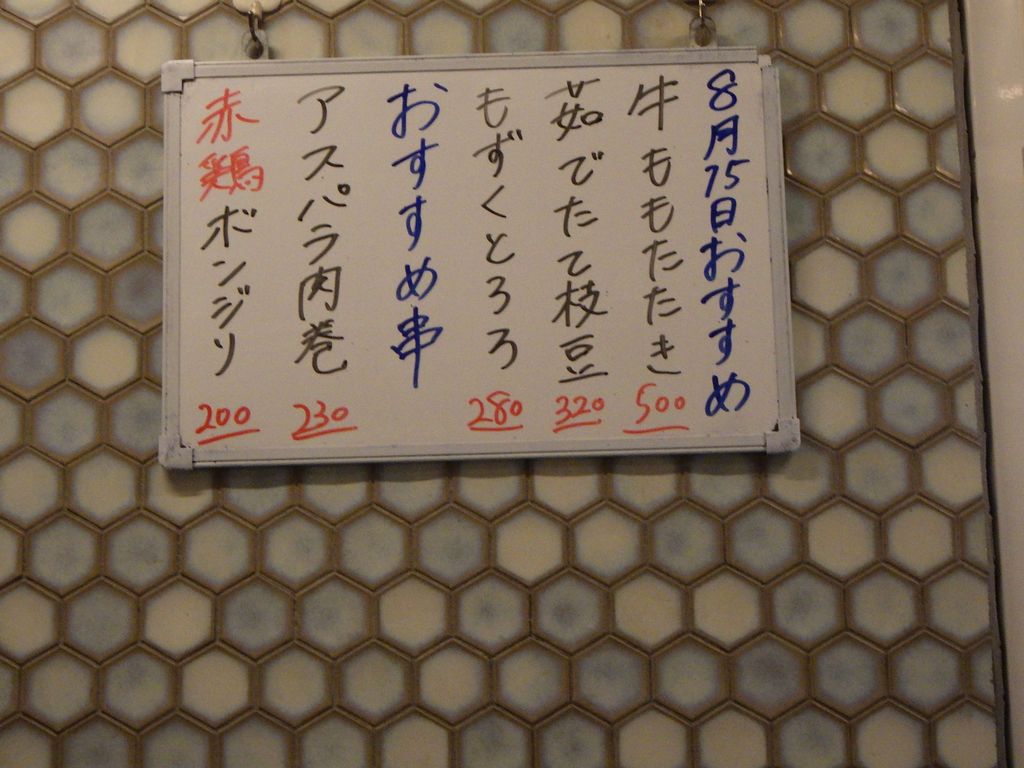 8月15日おすすめ
牛ももたたき 500
茹でたて枝豆 320
もずくとろろ 280
おすすめ串
アスパラ肉巻 230
赤鶏ボンジリ 200